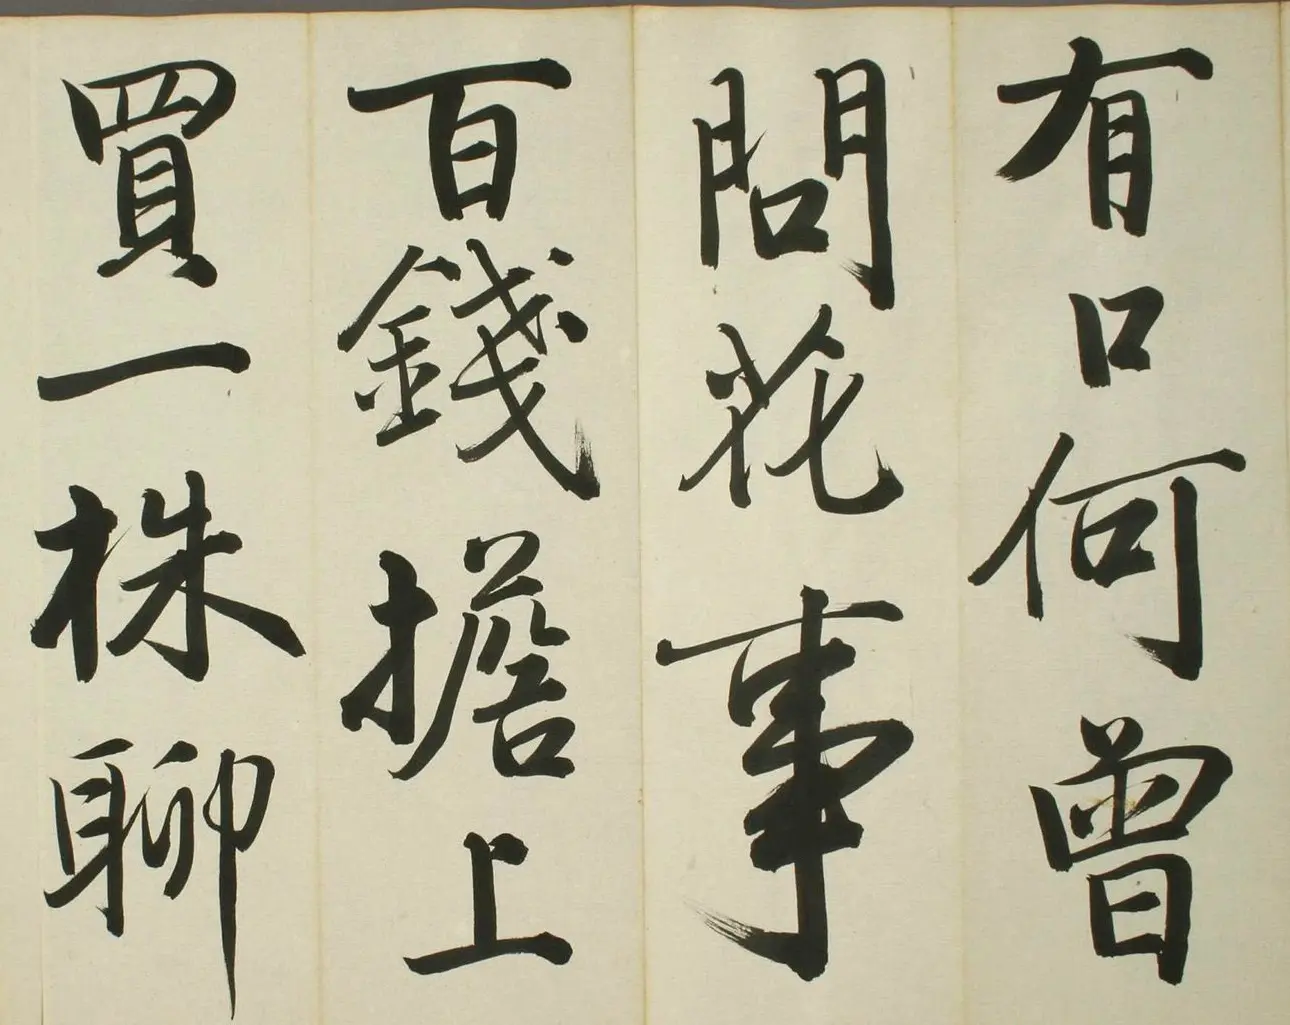 有口何曾
問花事
百錢擔上
買一株聊